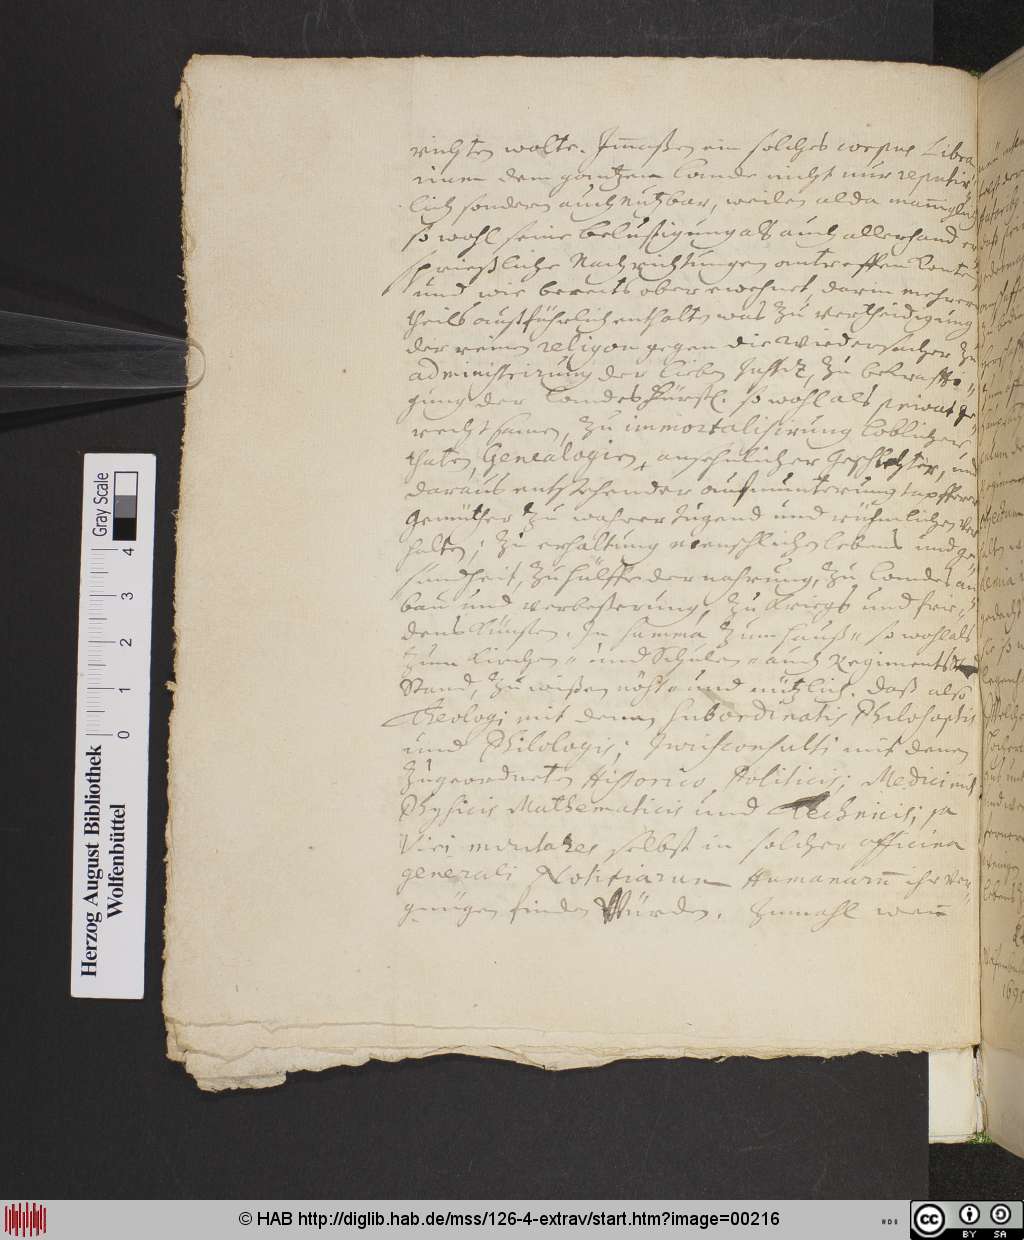 richten wolte. Immaßen ein solches corpus Libra
rium dem gantzen Lande nicht nur reputir-
lich sondern auch nutzbar, weilen alda männiglich
so wohl seine belustigung als auch allerhand er
sprießliche Nachrichtungen antreffen konte
und wie bereits ober erwehnet darin mehren
theils ausführlich enthalten was zu vertheidigung
der reinen religion gegen die Wiedersacher zu
administrirung der lieben Justiz, zu bekräffti-
gung der LandesFürstl. so wohl als privat ge
rechtsamen, zu immortalisirung loblicher
thaten, Genealogien, ansehnlicher Geschlechter, und
daraus entstehender aufmunterung tapfferer
Gemüther zu wahrer Tugend und rühmlichen ver
halten; zu erhaltung menschlichen lebens und ge
sundheit, zu hülffe der nahrung, zu Landes an
bau und verbeßerung, zu Kriegs und frie-
dens Künsten. In summa zum Hauß- so wohl als
zum Kirchen- und Schulen- auch Regiments
Stand, zu wißen nöhtig und nützlich. Daß also
Theologi mit denen subordinatis Philosophis
und Philologis; Jurisconsulti mit denen
zugeordneten Historico Politicis; Medici mit
Physicis Mathematicis und Technicis; ja
Viri militares selbst in solcher officina
generali Notitiarum Humanarum ihr ver-
gnügen finden Würden. Zumahl wenn
1695
Gray Scale
4
3
2
1
0
Herzog August Bibliothek
Wolfenbüttel
© HAB http://diglib.hab.de/mss/126-4-extrav/start.htm?image=00216
cc BY SA